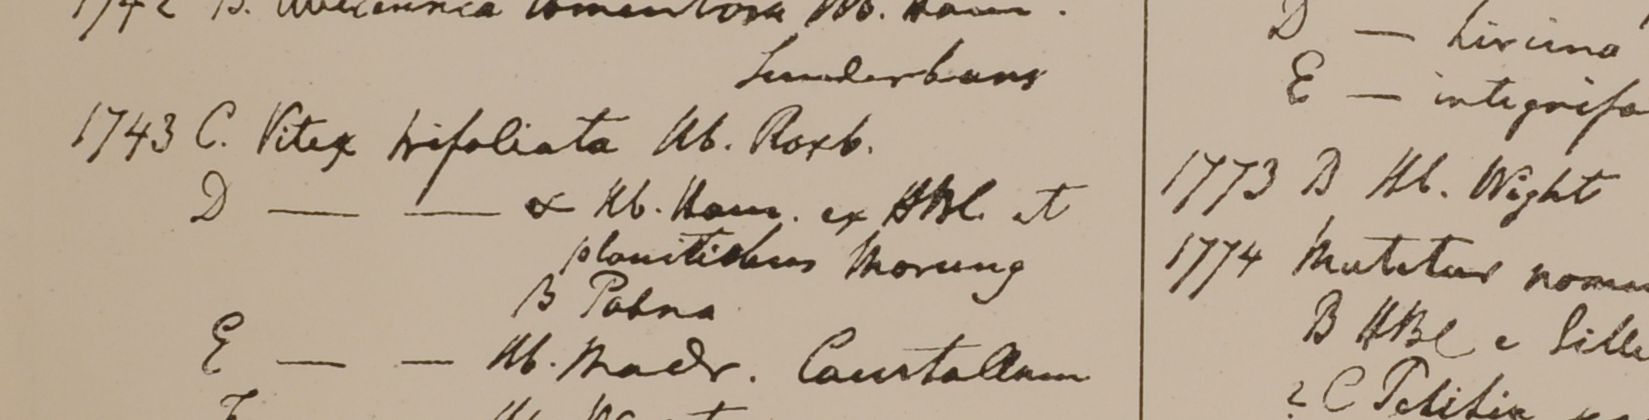 1742 B. Avicennia tomentosa Hb. Ham.
Sunderbans
1743 C. Vitex trifoliata Hb. Roxb.
D — — α Hb. Ham. ex HBC et
planitiebus Morung
β Patna
E — — Hb. Madr. Courtallum
D — hircina
E — integrifo
1773 B Hb. Wight
1774 Mutetur nomen
B HBC e Sille
? C